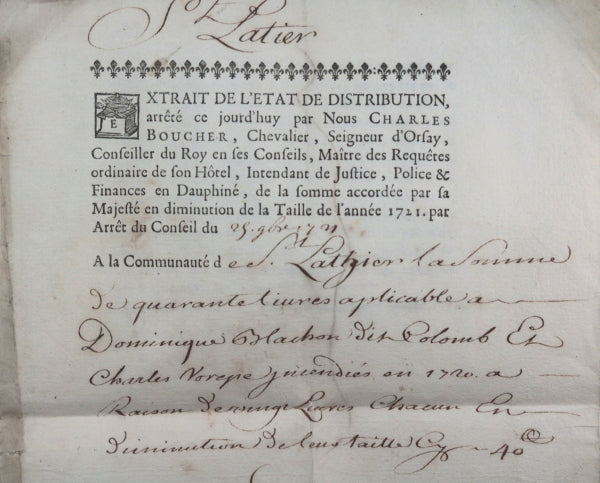 St
Latier
EXTRAIT DE L'ETAT DE DISTRIBUTION,
arrêté ce jourd'huy par Nous CHARLES
BOUCHER, Chevalier, Seigneur d'Orsay,
Conseiller du Roy en ses Conseils, Maître des Requêtes
ordinaire de son Hôtel, Intendant de Justice, Police &
Finances en Dauphiné, de la somme accordée par sa
Majesté en diminution de la Taille de l'année 1721. par
Arrêt du Conseil du 25. 9bre 1721
A la Communauté de St. Lattier la Somme
de quarante livres aplicable a
Dominique Blachon dit Colomb Et
Charles Vorepe jncendiés en 1720. a
Raison de vingt Livres Chacun En
diminution de leus taille Cy 40